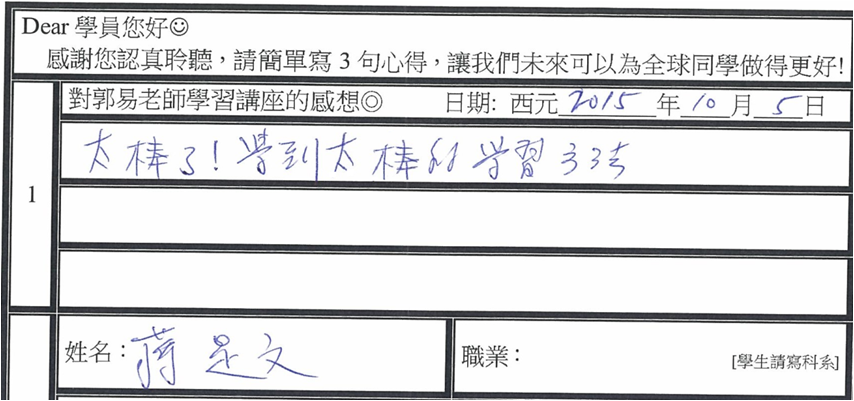 Dear 學員您好☺
感謝您認真聆聽，請簡單寫 3 句心得，讓我們未來可以為全球同學做得更好!
對郭易老師學習講座的感想◎ 日期: 西元 2015 年 10 月 5 日
太棒了!學到太棒的學習方法
1
姓名：蔣是文
職業： [學生請寫科系]